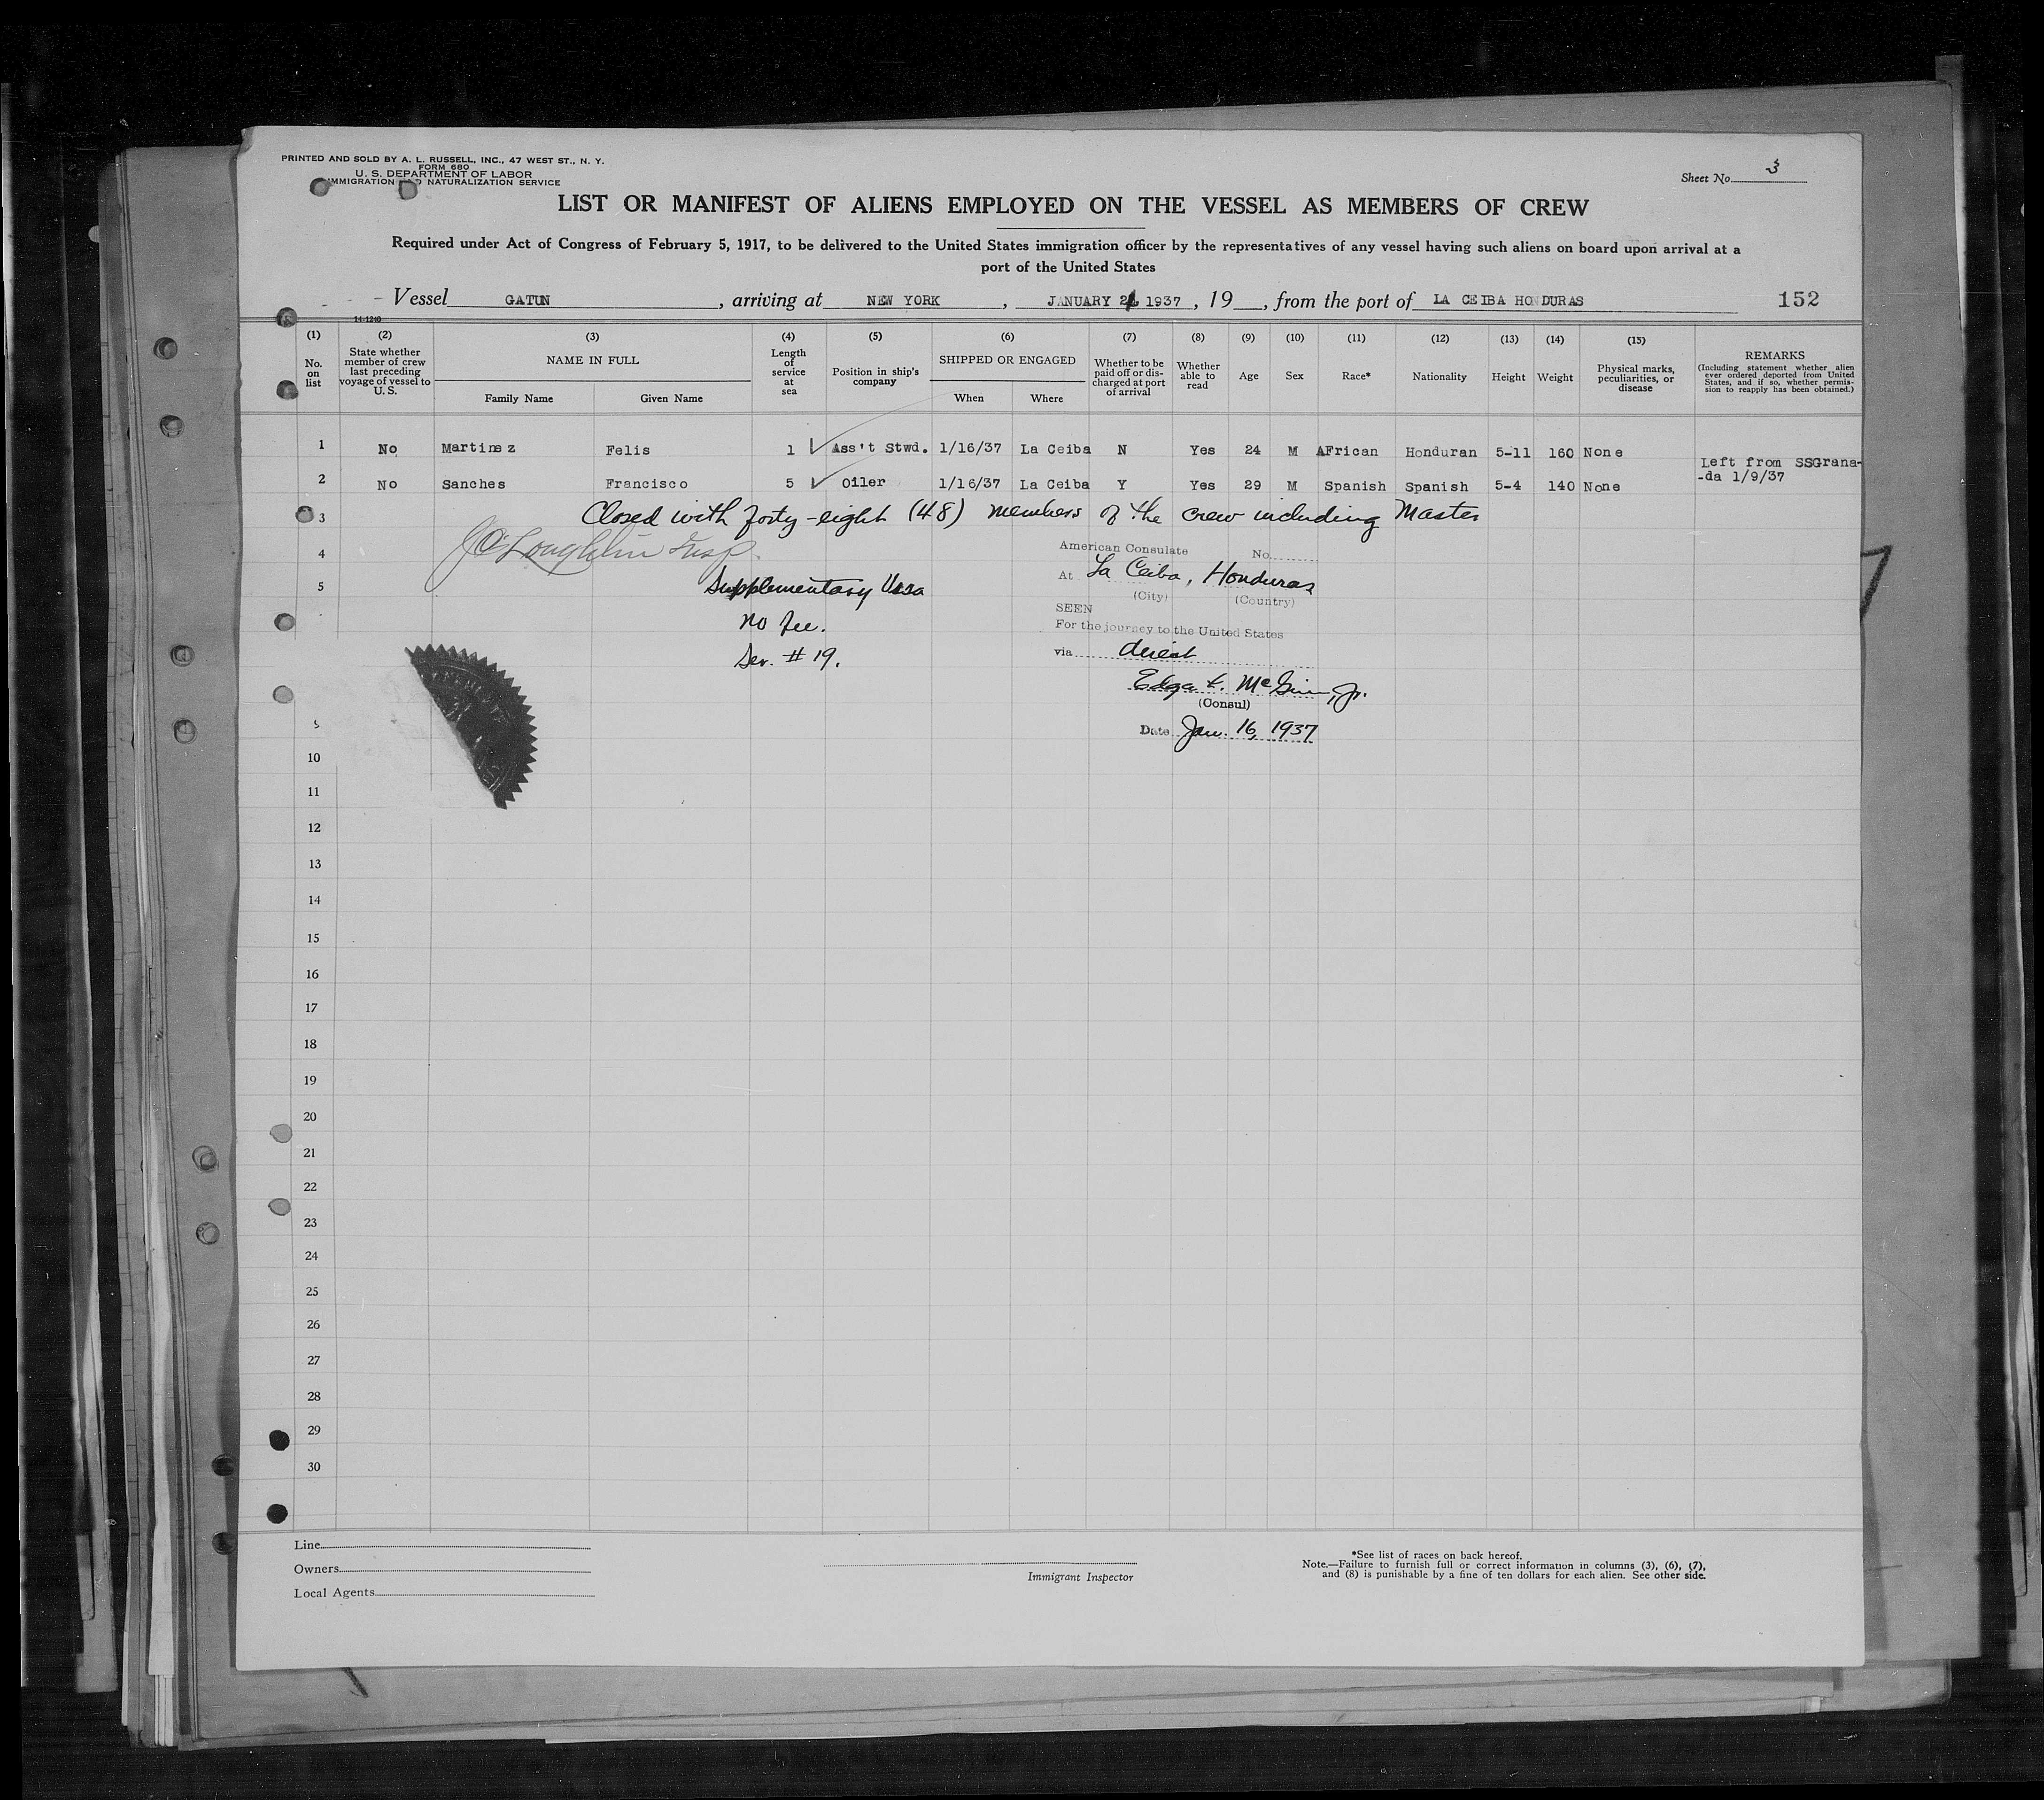 PRINTED AND SOLD BY A. L. RUSSELL, INC., 47 WEST ST., N. Y.
FORM 680
U. S. DEPARTMENT OF LABOR
IMMIGRATION NATURALIZATION SERVICE
Sheet No. 3
LIST OR MANIFEST OF ALIENS EMPLOYED ON THE VESSEL AS MEMBERS OF CREW
Required under Act of Congress of February 5, 1917, to be delivered to the United States immigration officer by the representatives of any vessel having such aliens on board upon arrival at a
port of the United States
Vessel GATUN, arriving at NEW YORK, JANUARY 21 1937, 19__, from the port of LA CEIBA HONDURAS 152
14-1240
(1) (2) (3) (4) (5) (6) (7) (8) (9) (10) (11) (12) (13) (14) (15)
No. on list
State whether member of crew last preceding voyage of vessel to U. S.
NAME IN FULL
Family Name Given Name
Length of service at sea
Position in ship's company
SHIPPED OR ENGAGED
When Where
Whether to be paid off or discharged at port of arrival
Whether able to read
Age Sex Race* Nationality Height Weight
Physical marks, peculiarities, or disease
REMARKS
(Including statement whether alien ever ordered deported from United States, and if so, whether permission to reapply has been obtained.)
1 No Martinez Felis 1 Ass't Stwd. 1/16/37 La Ceiba N Yes 24 M AFrican Honduran 5-11 160 None
Left from SSGrana-
-da 1/9/37
2 No Sanches Francisco 5 Oiler 1/16/37 La Ceiba Y Yes 29 M Spanish Spanish 5-4 140 None
3 Closed with forty-eight (48) members of the crew including Master
4 J O'Loughlin Insp.
American Consulate No.
At La Ceiba, Honduras
(City) (Country)
5 Supplementary Visa
SEEN
No fee.
For the journey to the United States
Ser. # 19.
via direct
(Consul)
Date Jan. 16, 1937
9
10
11
12
13
14
15
16
17
18
19
20
21
22
23
24
25
26
27
28
29
30
Line
Owners
Local Agents
Immigrant Inspector
*See list of races on back hereof.
Note.—Failure to furnish full or correct information in columns (3), (6), (7),
and (8) is punishable by a fine of ten dollars for each alien. See other side.